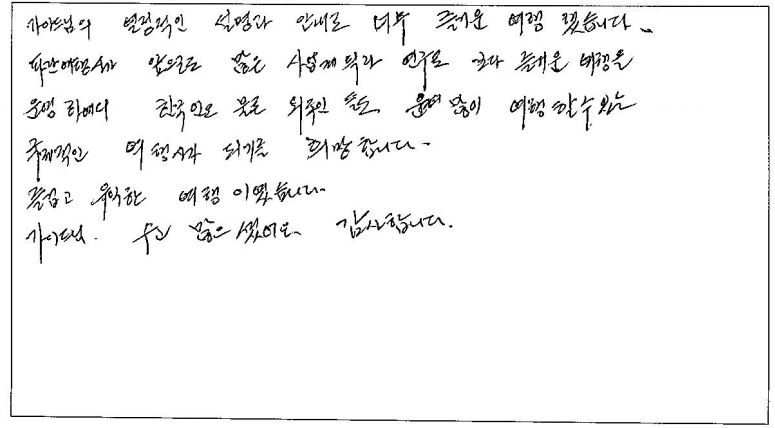 가이드님의 열정적인 설명과 안내로 너무 즐거운 여행 했습니다.
앞으로도 많은 연구로 보다 즐거운 여행을
운영하여 한국인은 물론 외국인들도 많이 여행 할 수 있는
국제적인 여행사가 되기를 희망합니다.
즐겁고 유익한 여행이였습니다.
가이드님. 수고 많으셨어요. 감사합니다.